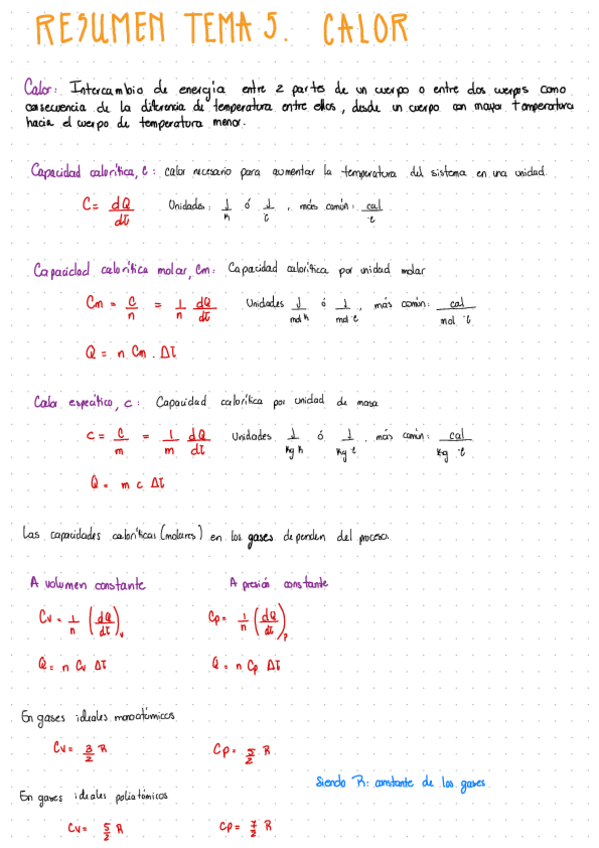 RESUMEN TEMA 5. CALOR
Calor: Intercambio de energía entre 2 partes de un cuerpo o entre dos cuerpos como
consecuencia de la diferencia de temperatura entre ellos, desde un cuerpo con mayor temperatura
hacia el cuerpo de temperatura menor.
Capacidad calorífica, C: calor necesario para aumentar la temperatura del sistema en una unidad.
C = dQ/dT Unidades: J/K ó J/ºC, más común: cal/ºC
Capacidad calorífica molar, Cm: Capacidad calorífica por unidad molar
Cm = C/n = 1/n dQ/dT Unidades J/mol K ó J/mol ºC, más común: cal/mol ºC
Q = n Cm · ΔT
Calor específico, c: Capacidad calorífica por unidad de masa
c = C/m = 1/m dQ/dT Unidades J/Kg K ó J/Kg ºC, más común: cal/Kg ºC
Q = m c ΔT
Las capacidades caloríficas (molares) en los gases dependen del proceso.
A volumen constante A presión constante
Cv = 1/n (dQ/dT)v Cp = 1/n (dQ/dT)p
Q = n Cv ΔT Q = n Cp ΔT
En gases ideales monoatómicos
Cv = 3/2 R Cp = 5/2 R
Siendo R: constante de los gases
En gases ideales poliatómicos
Cv = 5/2 R Cp = 7/2 R